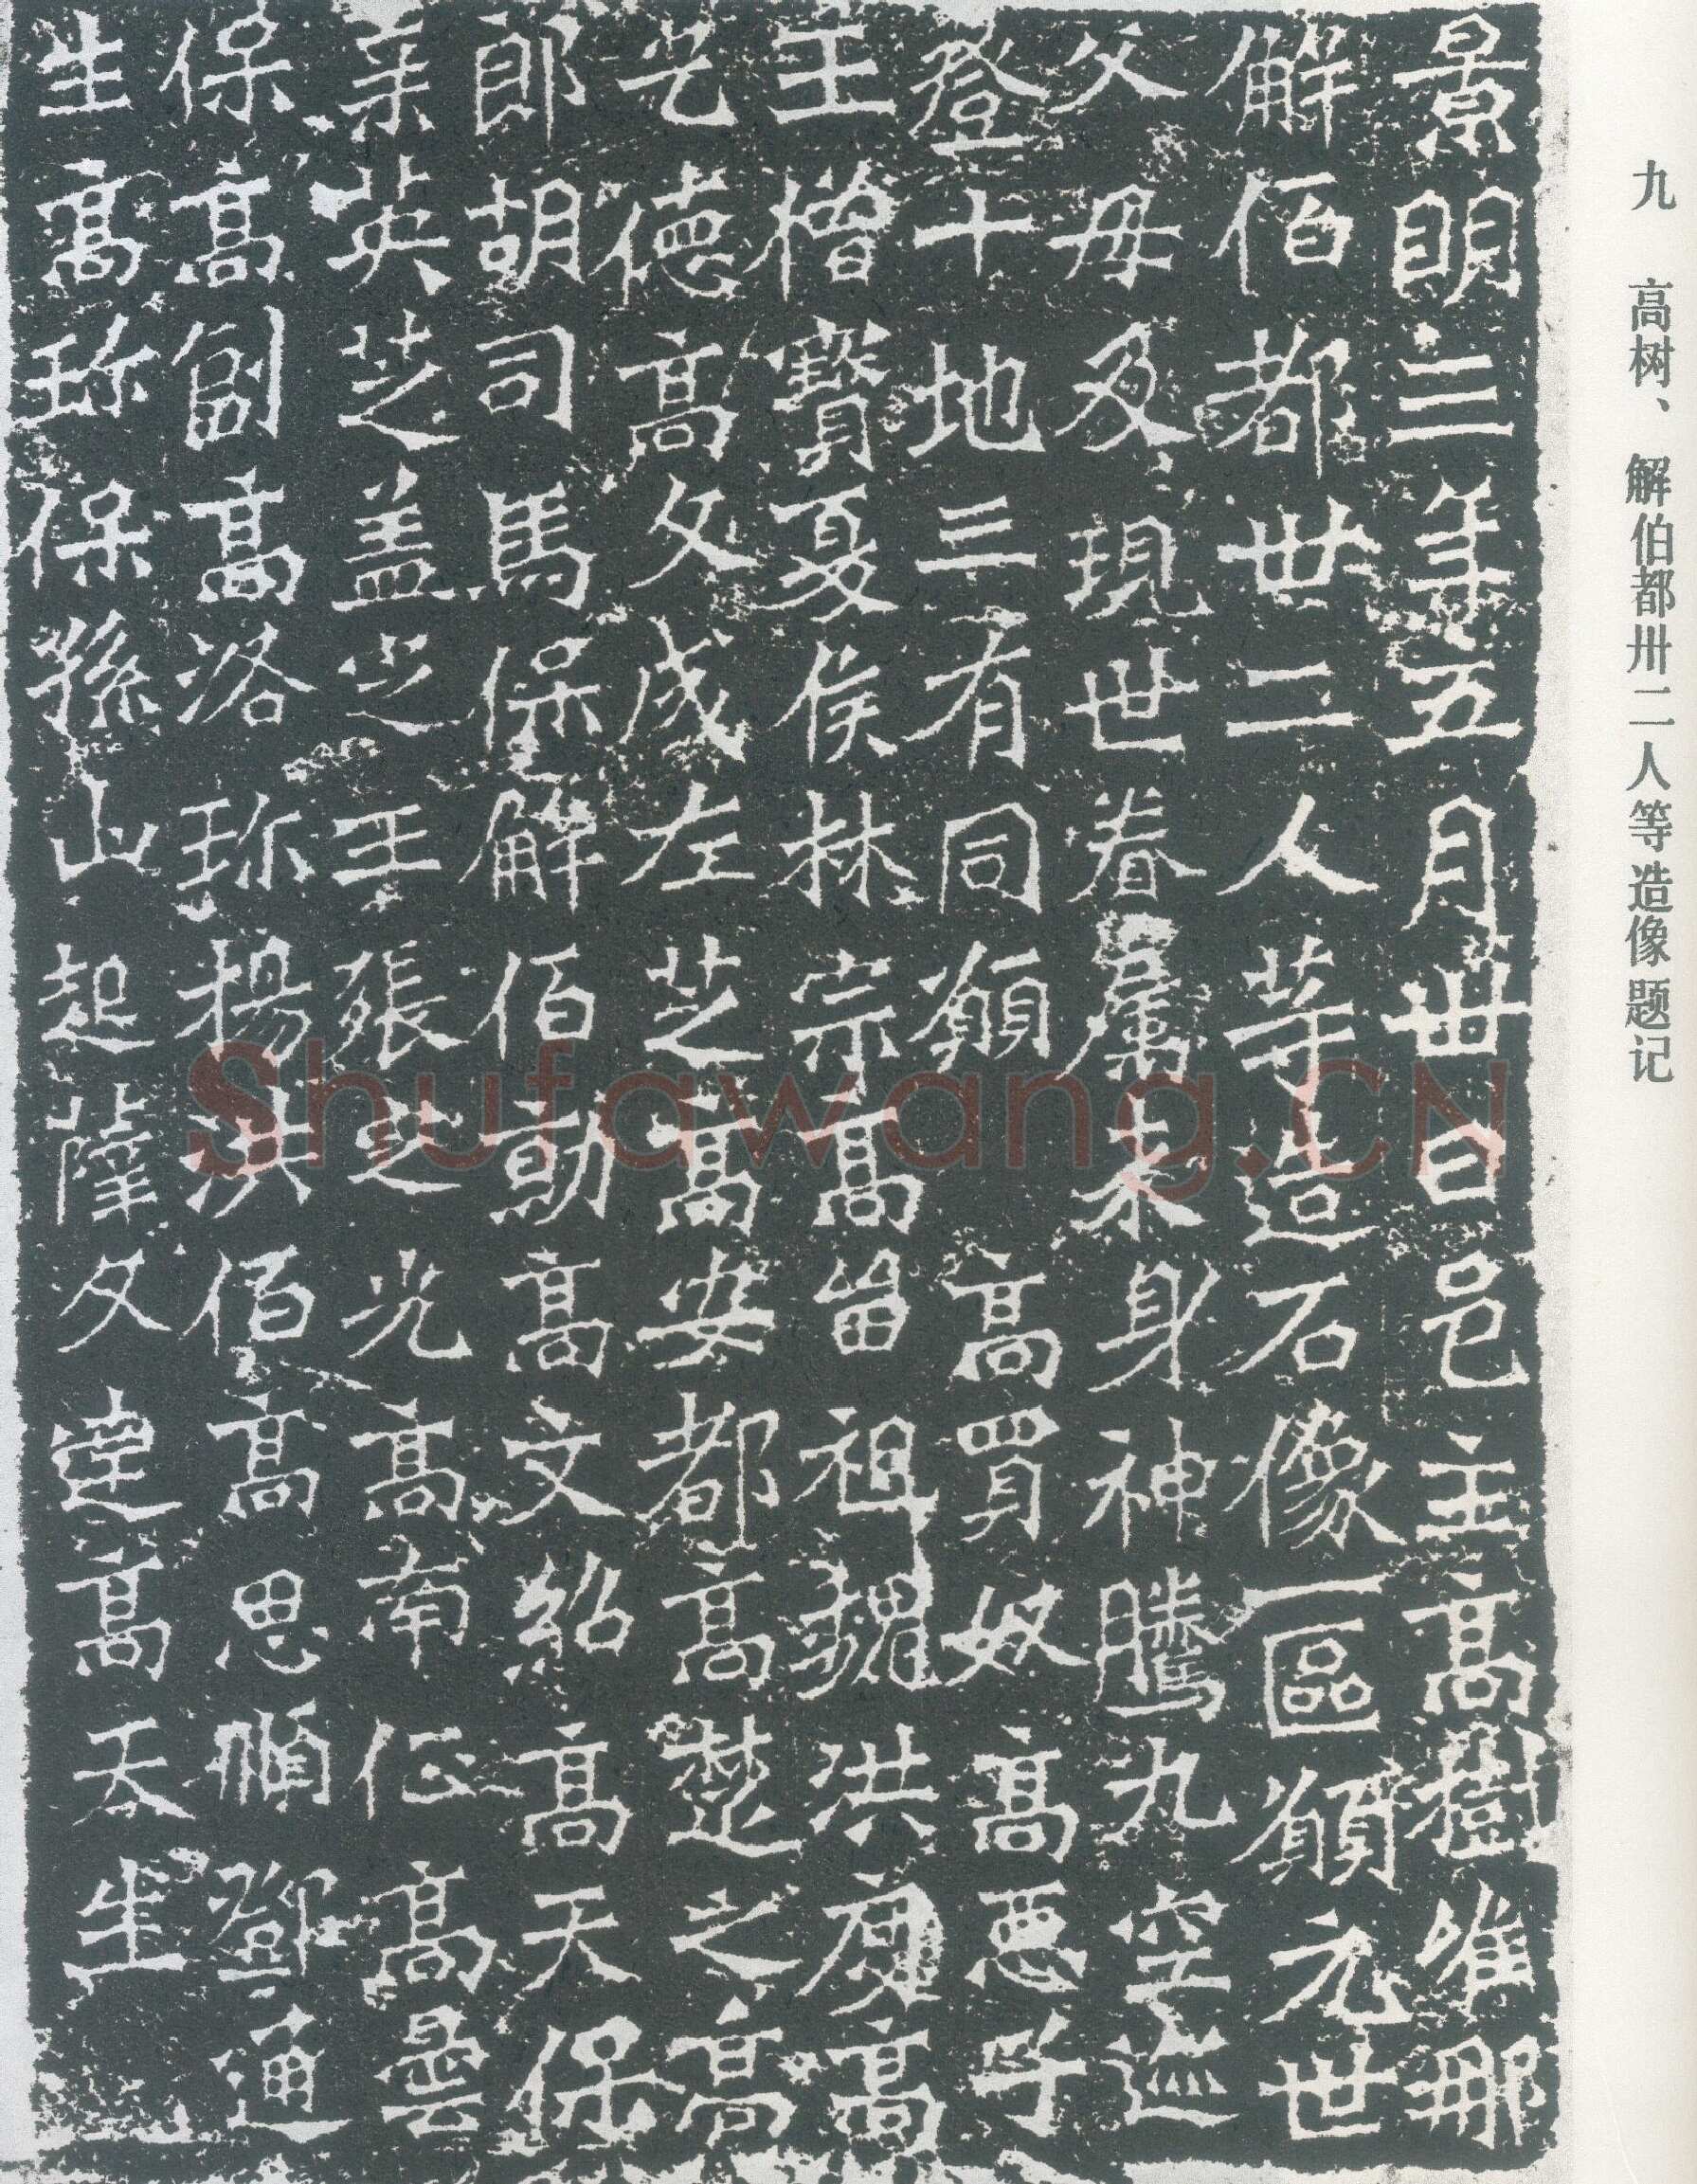 九 高树、解伯都卅二人等造像题记
景明三年五月卅日邑主高樹唯那
解佰都卅二人等造石像一區願元世
父母及現世眷屬来身神騰九空迊
登十地三有同願 高買奴高惡子
王僧寶夏侯林宗高留祖魏洪度高
乞德高文成左芝高安都高楚之高
郎胡司馬保解佰勣高文紹高天保
英芝盖定王張定光高南征高曇
保高副高洛珎楊洪佰高思順鄧通
生高珎保孫山起薩文達高天生
Shufawang.CN